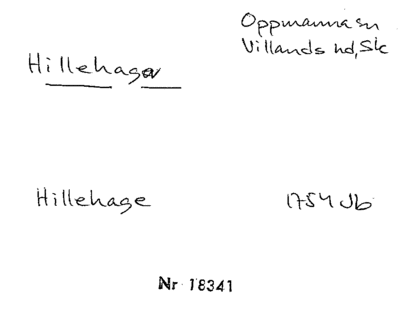 Oppmanna sn
Villands hd, Sk
Hillehaga
Hillehage 1754 Jb
Nr 18341